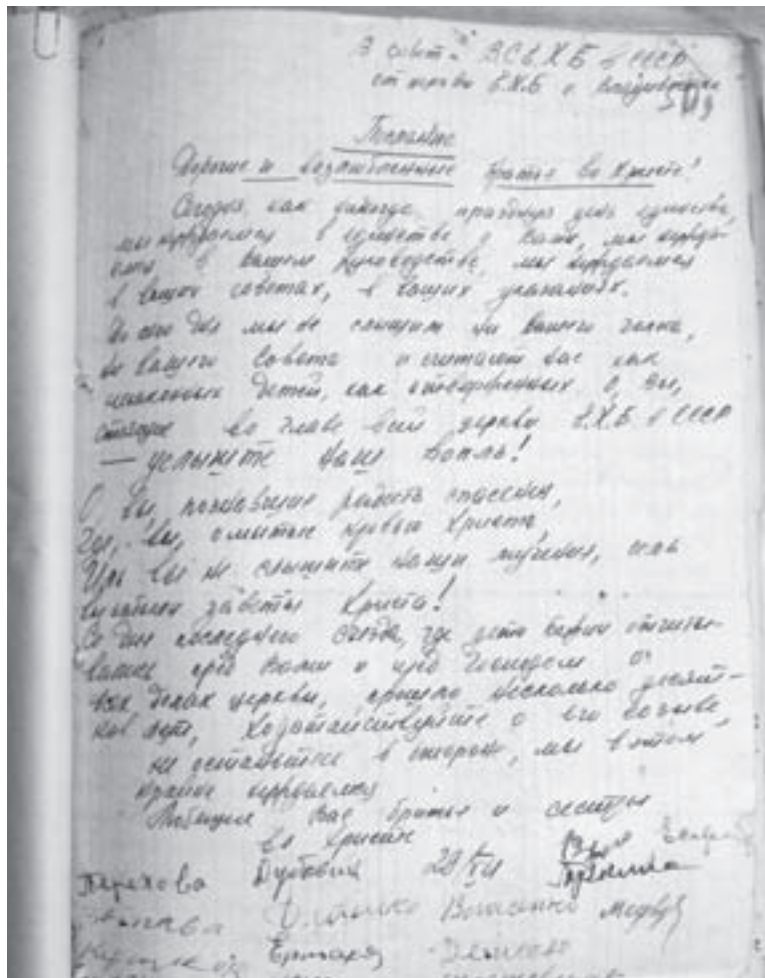 В совет ВСЕХБ в СССР
от церкви Е.Х.Б г. Владивостока
Послание
Дорогие и возлюбленные братья во Христе!
Сегодня, как никогда, празднуя день единства,
мы нуждаемся в единстве с Вами, мы нужда-
емся в вашем руководстве, мы нуждаемся
в ваших советах, в ваших указаниях.
До сего дня мы не слышим ни вашего голоса,
ни вашего совета и считают нас как
детей, как отверженных. О, вы,
стоящие во главе всей церкви Е.Х.Б в СССР
— услышите наш вопль!
О вы, познавшие радость спасения,
вы, омытые кровью Христа,
вы не слышите наши мучения, иль
заветы Христа!
Со дня последнего съезда, где дети Божии отчиты-
вались пред Вами и пред Господом о
всех делах церкви, прошло несколько десят-
ков лет, ходатайствуйте о его созыве
не останьтесь в стороне, мы в этом
крайне нуждаемся
Любящие Вас братья и сестры
во Христе
Терехова 20/XII
Власенко